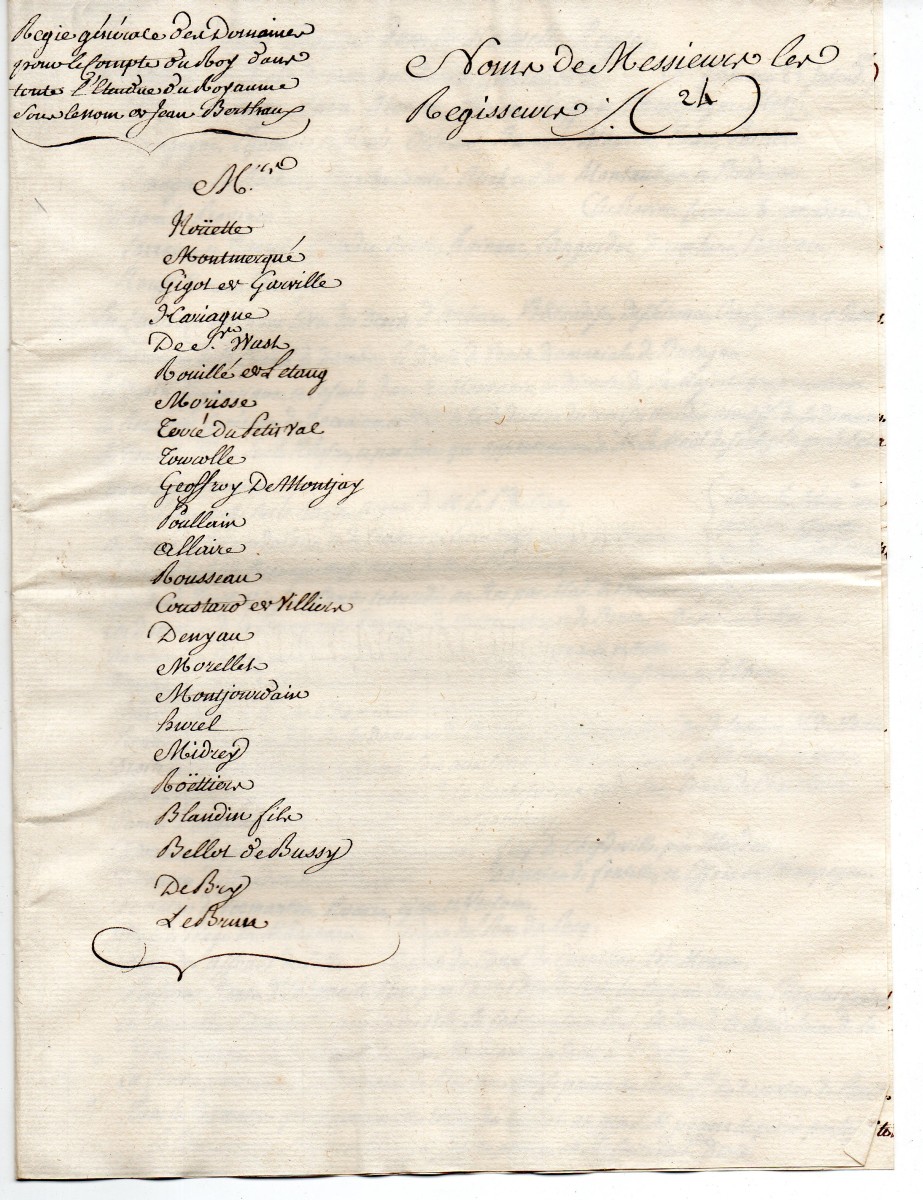 Regie générale des Domaines
pour le Compte du Roy dans
toute l'Etendue du Royaume
Sous le nom de Jean Berthaux
Noms de Messieurs les
Regisseurs /. (24)
M.rs
Noüette
Montmerqué
Gigot de Garville
Hariague
De S.t Wast
Rouillé de L'etang
Morisse
Terré Du Petit Val
Tourolle
Geoffroy De Montjay
Poullain
allaire
Rousseau
Coustard de Villiers
Denyau
Morellet
Montjourdain
hurel
Midrey
Roëttiers
Blandin fils
Bellot de Bussy
De Bry
Le Brun